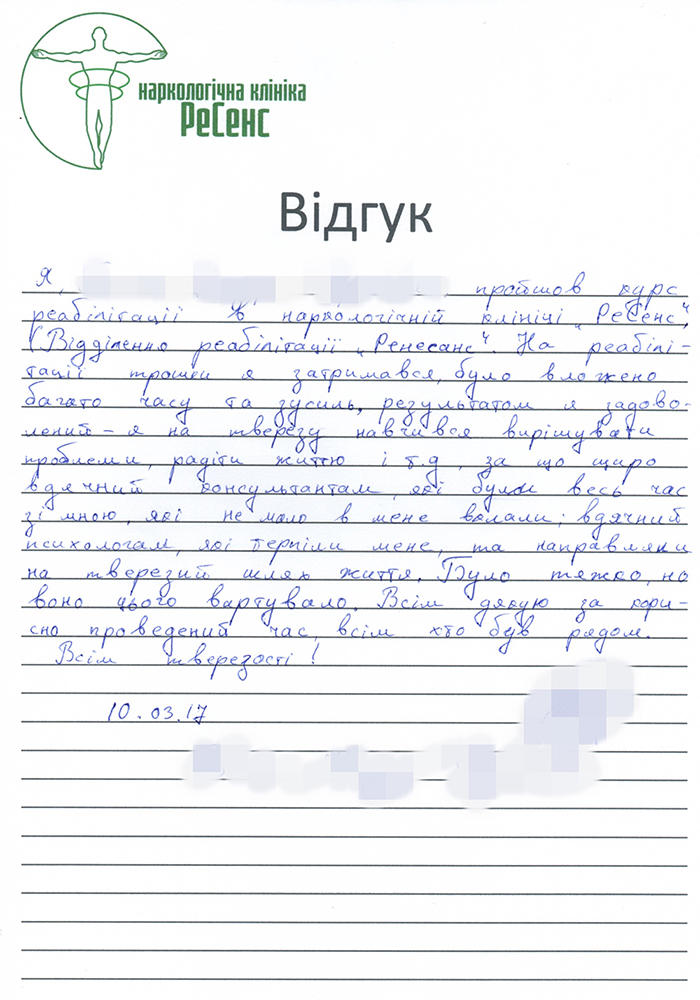 наркологічна клініка
РеСенс
Відгук
Я, пройшов курс
реабілітації в наркологічній клініці „РеСенс",
(Відділення реабілітації „Ренесанс". На реабілі-
тації трошки я затримався, було вложено
багато часу та зусиль, результатом я задово-
лений – я на тверезу навчився вирішувати
проблеми, радіти життю і т.д, за що щиро
вдячний консультантам, які були весь час
зі мною, які не мало в мене вклали; вдячний
психологам, які терпіли мене, та направляли
на тверезий шлях життя. Було тяжко, но
воно цього вартувало. Всім дякую за кори-
сно проведений час, всім хто був рядом.
Всім тверезості!
10.03.17